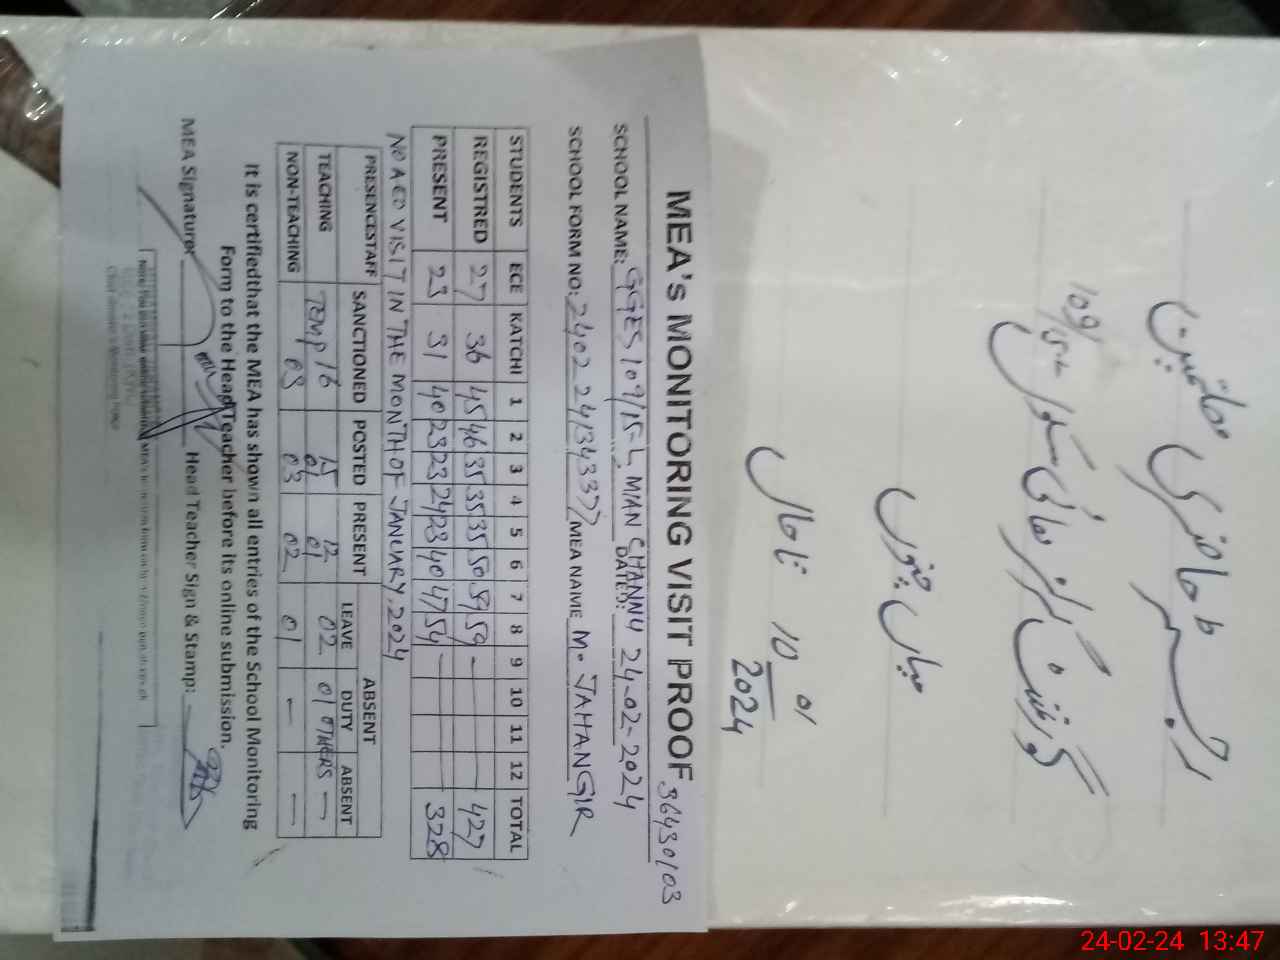 رجسٹر حاضری معلمین
گورنمنٹ گرلز ہائی سکول 109/15ایل
میاں چنوں
10/01/2024 تا حال
MEA's MONITORING VISIT PROOF 36430103
SCHOOL NAME: GGES 109/15-L MIAN CHANNU DATED: 24-02-2024
SCHOOL FORM NO: 2402 24134337 MEA NAME M. JAHANGIR
STUDENTS ECE KATCHI 1 2 3 4 5 6 7 8 9 10 11 12 TOTAL
REGISTRED 27 36 45 46 35 35 35 50 59 59 - 427
PRESENT 23 31 40 23 23 24 23 40 47 54 - 328
NO ACO VISIT IN THE MONTH OF JANUARY. 2024
PRESENCESTAFF SANCTIONED POSTED PRESENT ABSENT
LEAVE DUTY ABSENT
TEACHING Temp 16 15 01 12 01 02 01 OTHERS —
NON-TEACHING 03 03 02 01 — —
It is certifiedthat the MEA has shown all entries of the School Monitoring
Form to the Head Teacher before its online submission.
MEA Signature: Head Teacher Sign & Stamp:
24-02-24 13:47